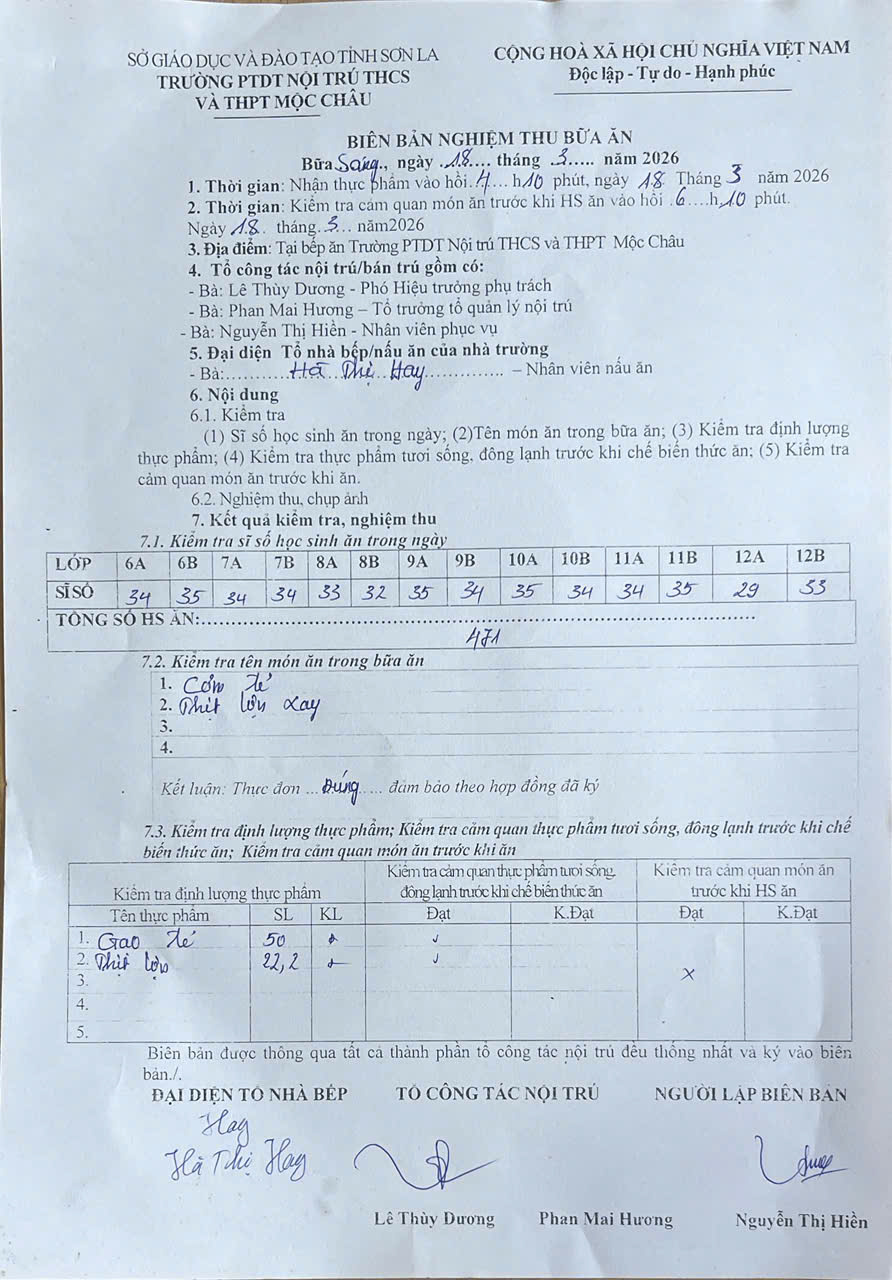 SỞ GIÁO DỤC VÀ ĐÀO TẠO TỈNH SƠN LA
TRƯỜNG PTDT NỘI TRÚ THCS
VÀ THPT MỘC CHÂU
CỘNG HOÀ XÃ HỘI CHỦ NGHĨA VIỆT NAM
Độc lập - Tự do - Hạnh phúc
BIÊN BẢN NGHIỆM THU BỮA ĂN
Bữa Sáng., ngày .18.... tháng .3..... năm 2026
1. Thời gian: Nhận thực phẩm vào hồi.4....h10 phút, ngày 18 Tháng 3 năm 2026
2. Thời gian: Kiểm tra cảm quan món ăn trước khi HS ăn vào hồi .6....h.10 phút.
Ngày .18.. tháng..3... năm2026
3. Địa điểm: Tại bếp ăn Trường PTDT Nội trú THCS và THPT Mộc Châu
4. Tổ công tác nội trú/bán trú gồm có:
- Bà: Lê Thùy Dương - Phó Hiệu trưởng phụ trách
- Bà: Phan Mai Hương – Tổ trưởng tổ quản lý nội trú
- Bà: Nguyễn Thị Hiền - Nhân viên phục vụ
5. Đại diện Tổ nhà bếp/nấu ăn của nhà trường
- Bà:...........Hà Thị Hay.............. – Nhân viên nấu ăn
6. Nội dung
6.1. Kiểm tra
(1) Sĩ số học sinh ăn trong ngày; (2)Tên món ăn trong bữa ăn; (3) Kiểm tra định lượng
thực phẩm; (4) Kiểm tra thực phẩm tươi sống, đông lạnh trước khi chế biến thức ăn; (5) Kiểm tra
cảm quan món ăn trước khi ăn.
6.2. Nghiệm thu, chụp ảnh
7. Kết quả kiểm tra, nghiệm thu
7.1. Kiểm tra sĩ số học sinh ăn trong ngày
LỚP 6A 6B 7A 7B 8A 8B 9A 9B 10A 10B 11A 11B 12A 12B
SĨ SỐ 34 35 34 34 33 32 35 34 35 34 34 35 29 33
TỔNG SỐ HS ĂN:..............................
471
7.2. Kiểm tra tên món ăn trong bữa ăn
1. Cơm tẻ
2. Thịt lợn xay
3.
4.
Kết luận: Thực đơn ...Đúng..... đảm bảo theo hợp đồng đã ký
7.3. Kiểm tra định lượng thực phẩm; Kiểm tra cảm quan thực phẩm tươi sống, đông lạnh trước khi chế
biến thức ăn; Kiểm tra cảm quan món ăn trước khi ăn
Kiểm tra định lượng thực phẩm
Kiểm tra cảm quan thực phẩm tươi sống,
đông lạnh trước khi chế biến thức ăn
Kiểm tra cảm quan món ăn
trước khi HS ăn
Tên thực phẩm SL KL Đạt K.Đạt Đạt K.Đạt
1. Gạo tẻ 50 ✓
2. Thịt lợn 22,2 ✓
3. x
4.
5.
Biên bản được thông qua tất cả thành phần tổ công tác nội trú đều thống nhất và ký vào biên
bản./.
ĐẠI DIỆN TỔ NHÀ BẾP TỔ CÔNG TÁC NỘI TRÚ NGƯỜI LẬP BIÊN BẢN
Hay
Hà Thị Hay
Lê Thùy Dương Phan Mai Hương Nguyễn Thị Hiền